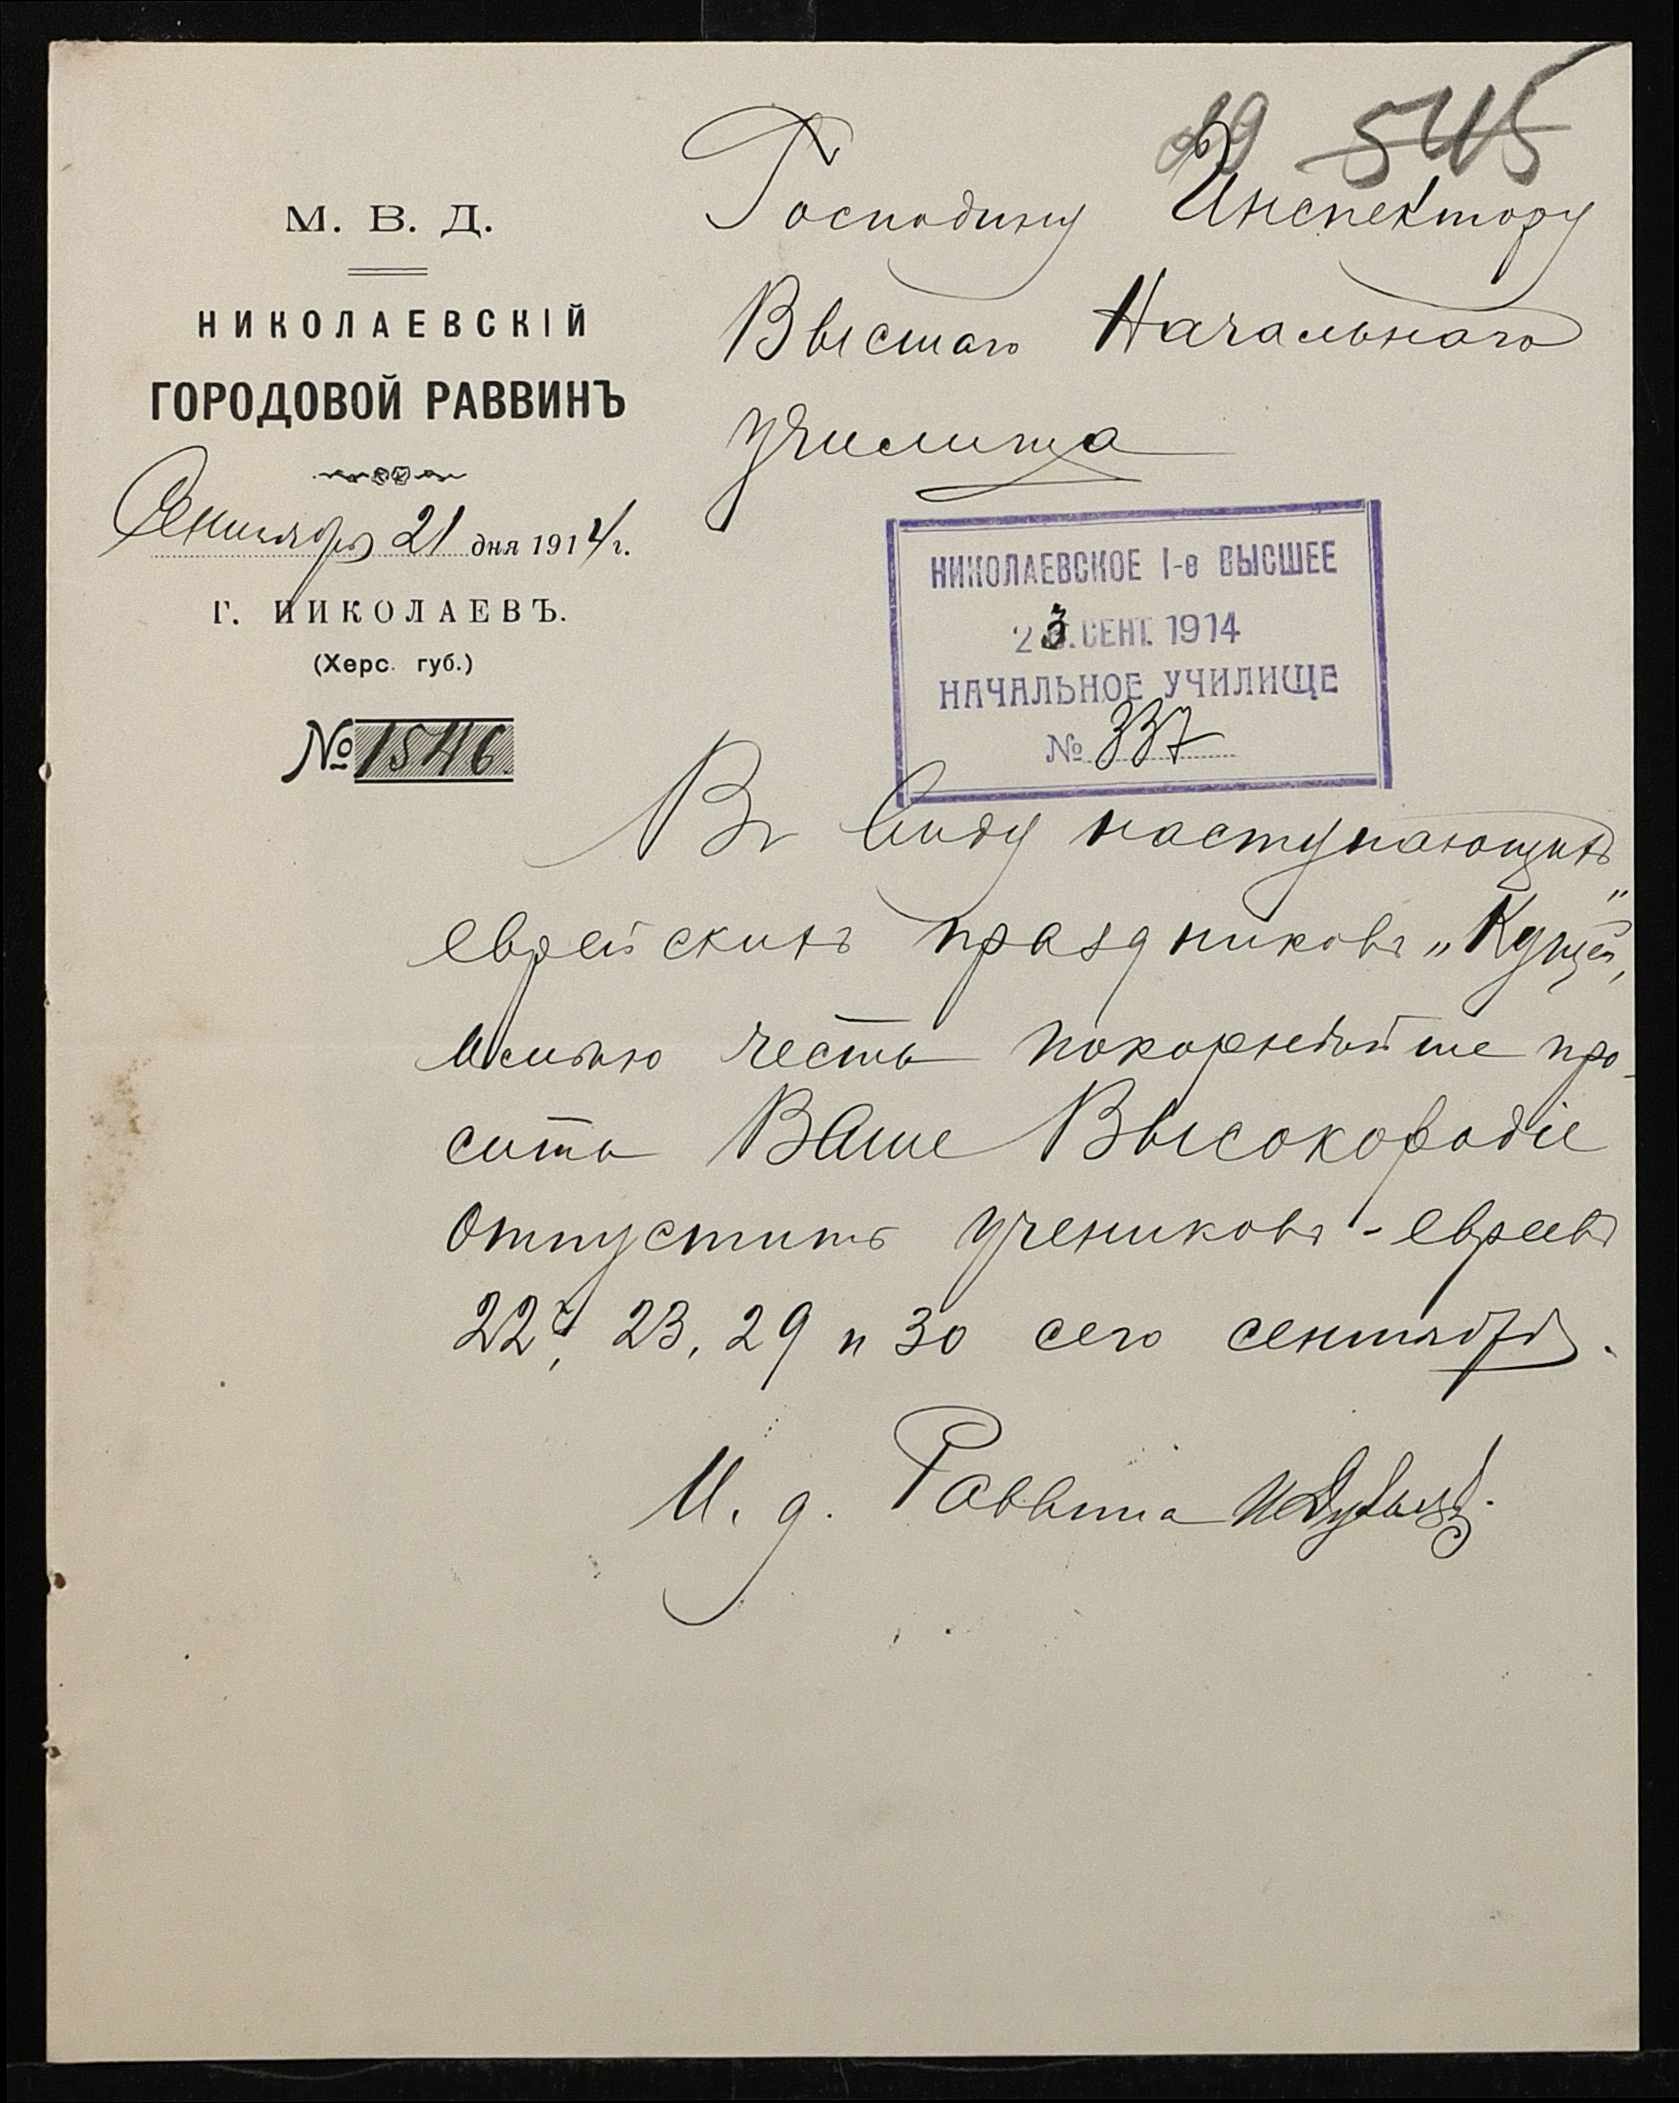 29 545
М. В. Д.
НИКОЛАЕВСКІЙ
ГОРОДОВОЙ РАВВИНЪ
Сентября 21 дня 1914 г.
Г. НИКОЛАЕВЪ.
(Херс. губ.)
№ 1546
Господину Инспектору
Высшаго Начальнаго
училища
НИКОЛАЕВСКОЕ I-е ВЫСШЕЕ
23. СЕНТ. 1914
НАЧАЛЬНОЕ УЧИЛИЩЕ
№ 337
Въ виду наступающихъ
еврейскихъ праздниковъ „Кущей“,
имѣю честь покорнѣйше про-
сить Ваше Высокородіе
отпустить учениковъ-евреевъ
22, 23, 29 и 30 сего сентября.
И. д. Раввина